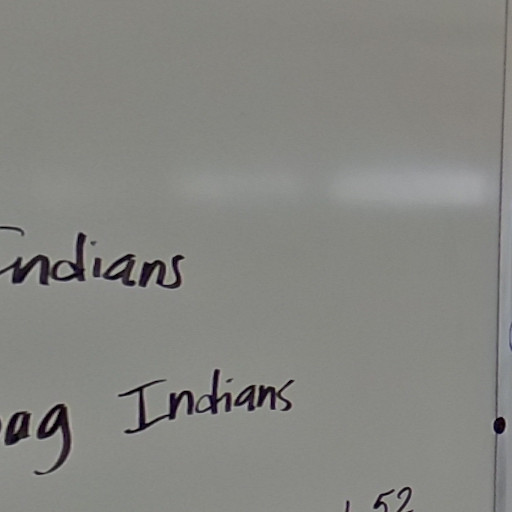 Indians
ag Indians
52